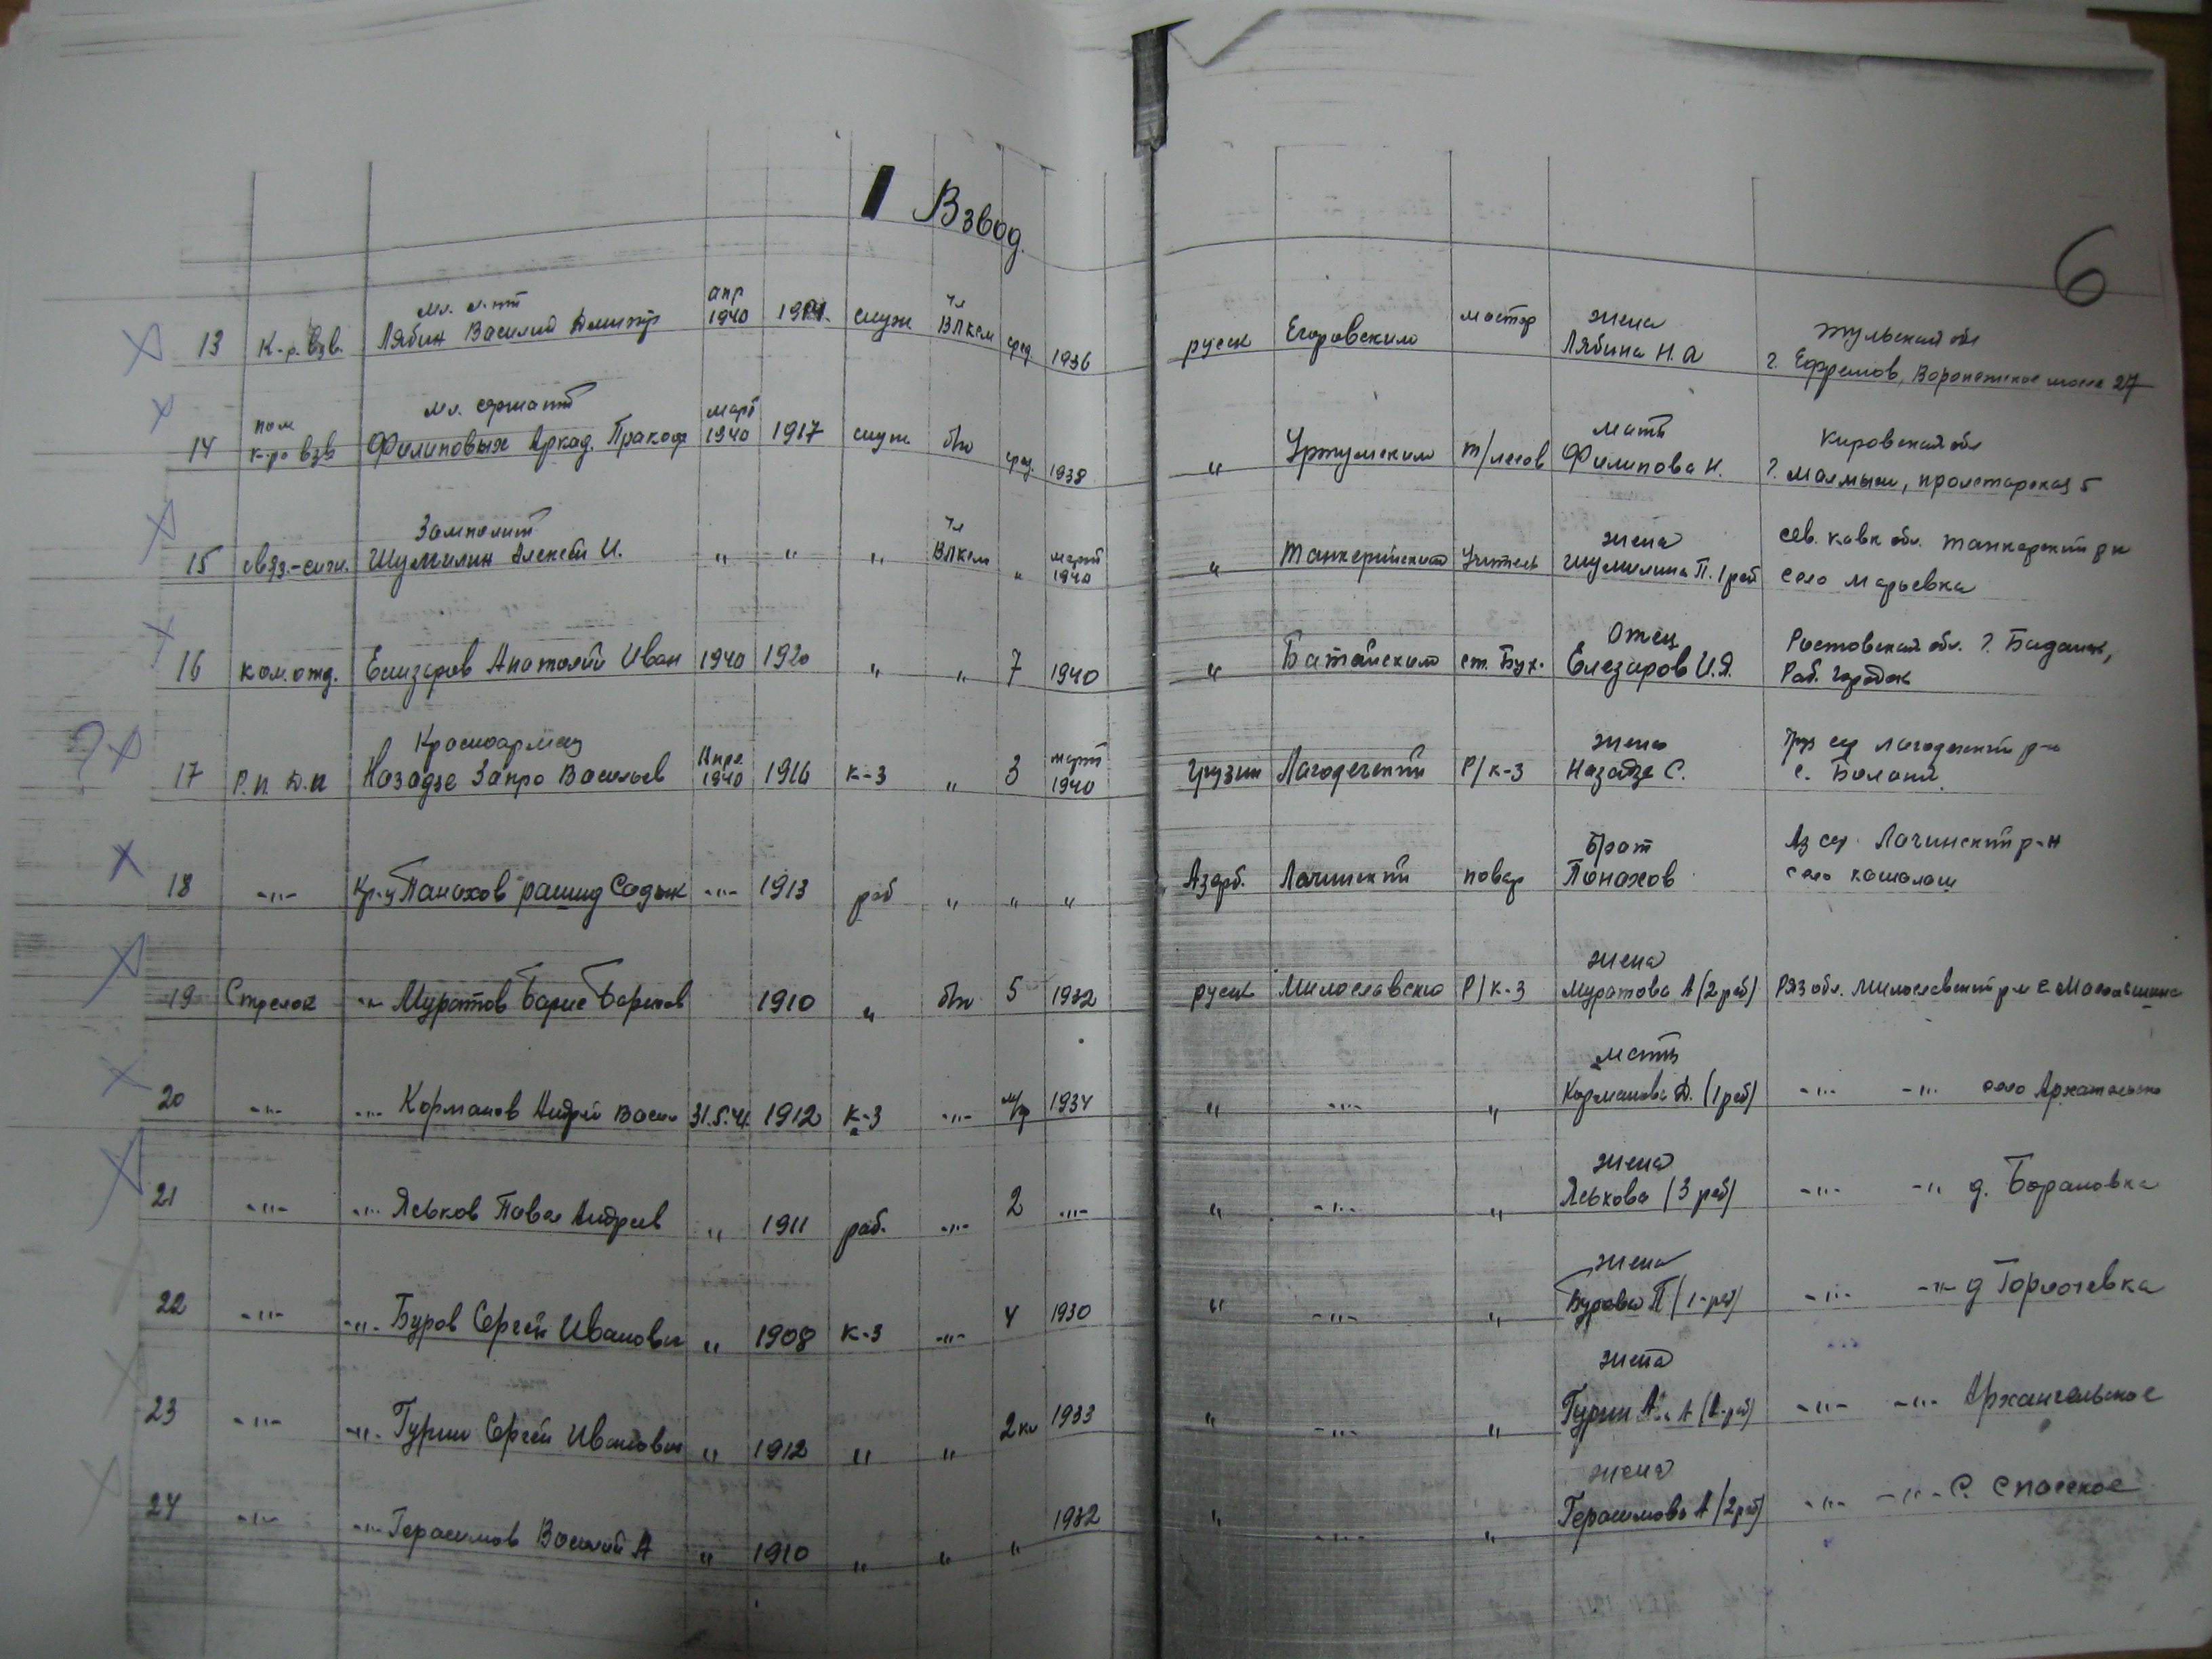 I Взвод.
6
13 К-р. Взв. мл. л-тт Лябин Василий Дмитр апр 1940 служ чл ВЛКСМ сред 1936 русск Егоровским мастер жена Лябина Н. А Тульская обл г. Ефремов, Воронежское шоссе 27
14 пом к-ра взв мл. сержант Филиповых Аркад. Пракоф март 1940 1917 служ. б/п сред. 1938 " Уржумским т/лесов мать Филипова Н. Кировская обл г. Малмыж, пролетарская 5
15 связ.-сигн. Замполит Шумилин Алексей И. " " " чл ВЛКСМ " март 1940 " учитель жена Шумилина П. 1 реб сев. кавк обл. район село Марьевка
16 ком. отд. Елизаров Анатолий Иван 1940 1920 " " 7 1940 " Батайским ст. Бух. Отец Елезаров И. Я. Ростовская обл. г. Раб. городок
17 Р. п. Д. п Красноармеец Назадзе Закро Васильев Апре 1940 1916 к-з " 3 март 1940 грузин Лагодехский Р/к-з жена Назадзе С. Груз сср Лагодехский р-н с.
18 -"- Кр-ц Панахов рашид Садык -"- 1913 раб " " " Азерб. Лачинский повар Брат Панахов Аз сср Лачинский р-н село
19 Стрелок -"- Муратов Барис Барисов 1910 " б/п 5 1932 русск Милославско Р/к-з жена Муратова А (2 реб) Ряз обл. Милославский р-н с
20 -"- -"- Корманов Андрей Васил 31.5.41. 1912 к-з -"- м/гр 1934 " -"- " мать Корманова Д. (1 реб) -"- -"- село
21 -"- -"- Яськов Павел Андреев " 1911 раб. -"- 2 -"- " -"- " жена Яськова (3 реб) -"- -"- д. Барановка
22 -"- -"- Буров Сергей Иванович " 1908 к-з -"- 4 1930 " -"- " жена Бурова П (1-реб) -"- -"- д
23 -"- -"- Гурин Сергей Иванович " 1912 " " 2 кл 1933 " -"- " жена Гурин А -"- -"- Архангельское
24 -"- -"- Герасимов Василий А " 1910 " " " 1932 " -"- " жена Герасимова А (2 реб) -"- -"- С. Спасское